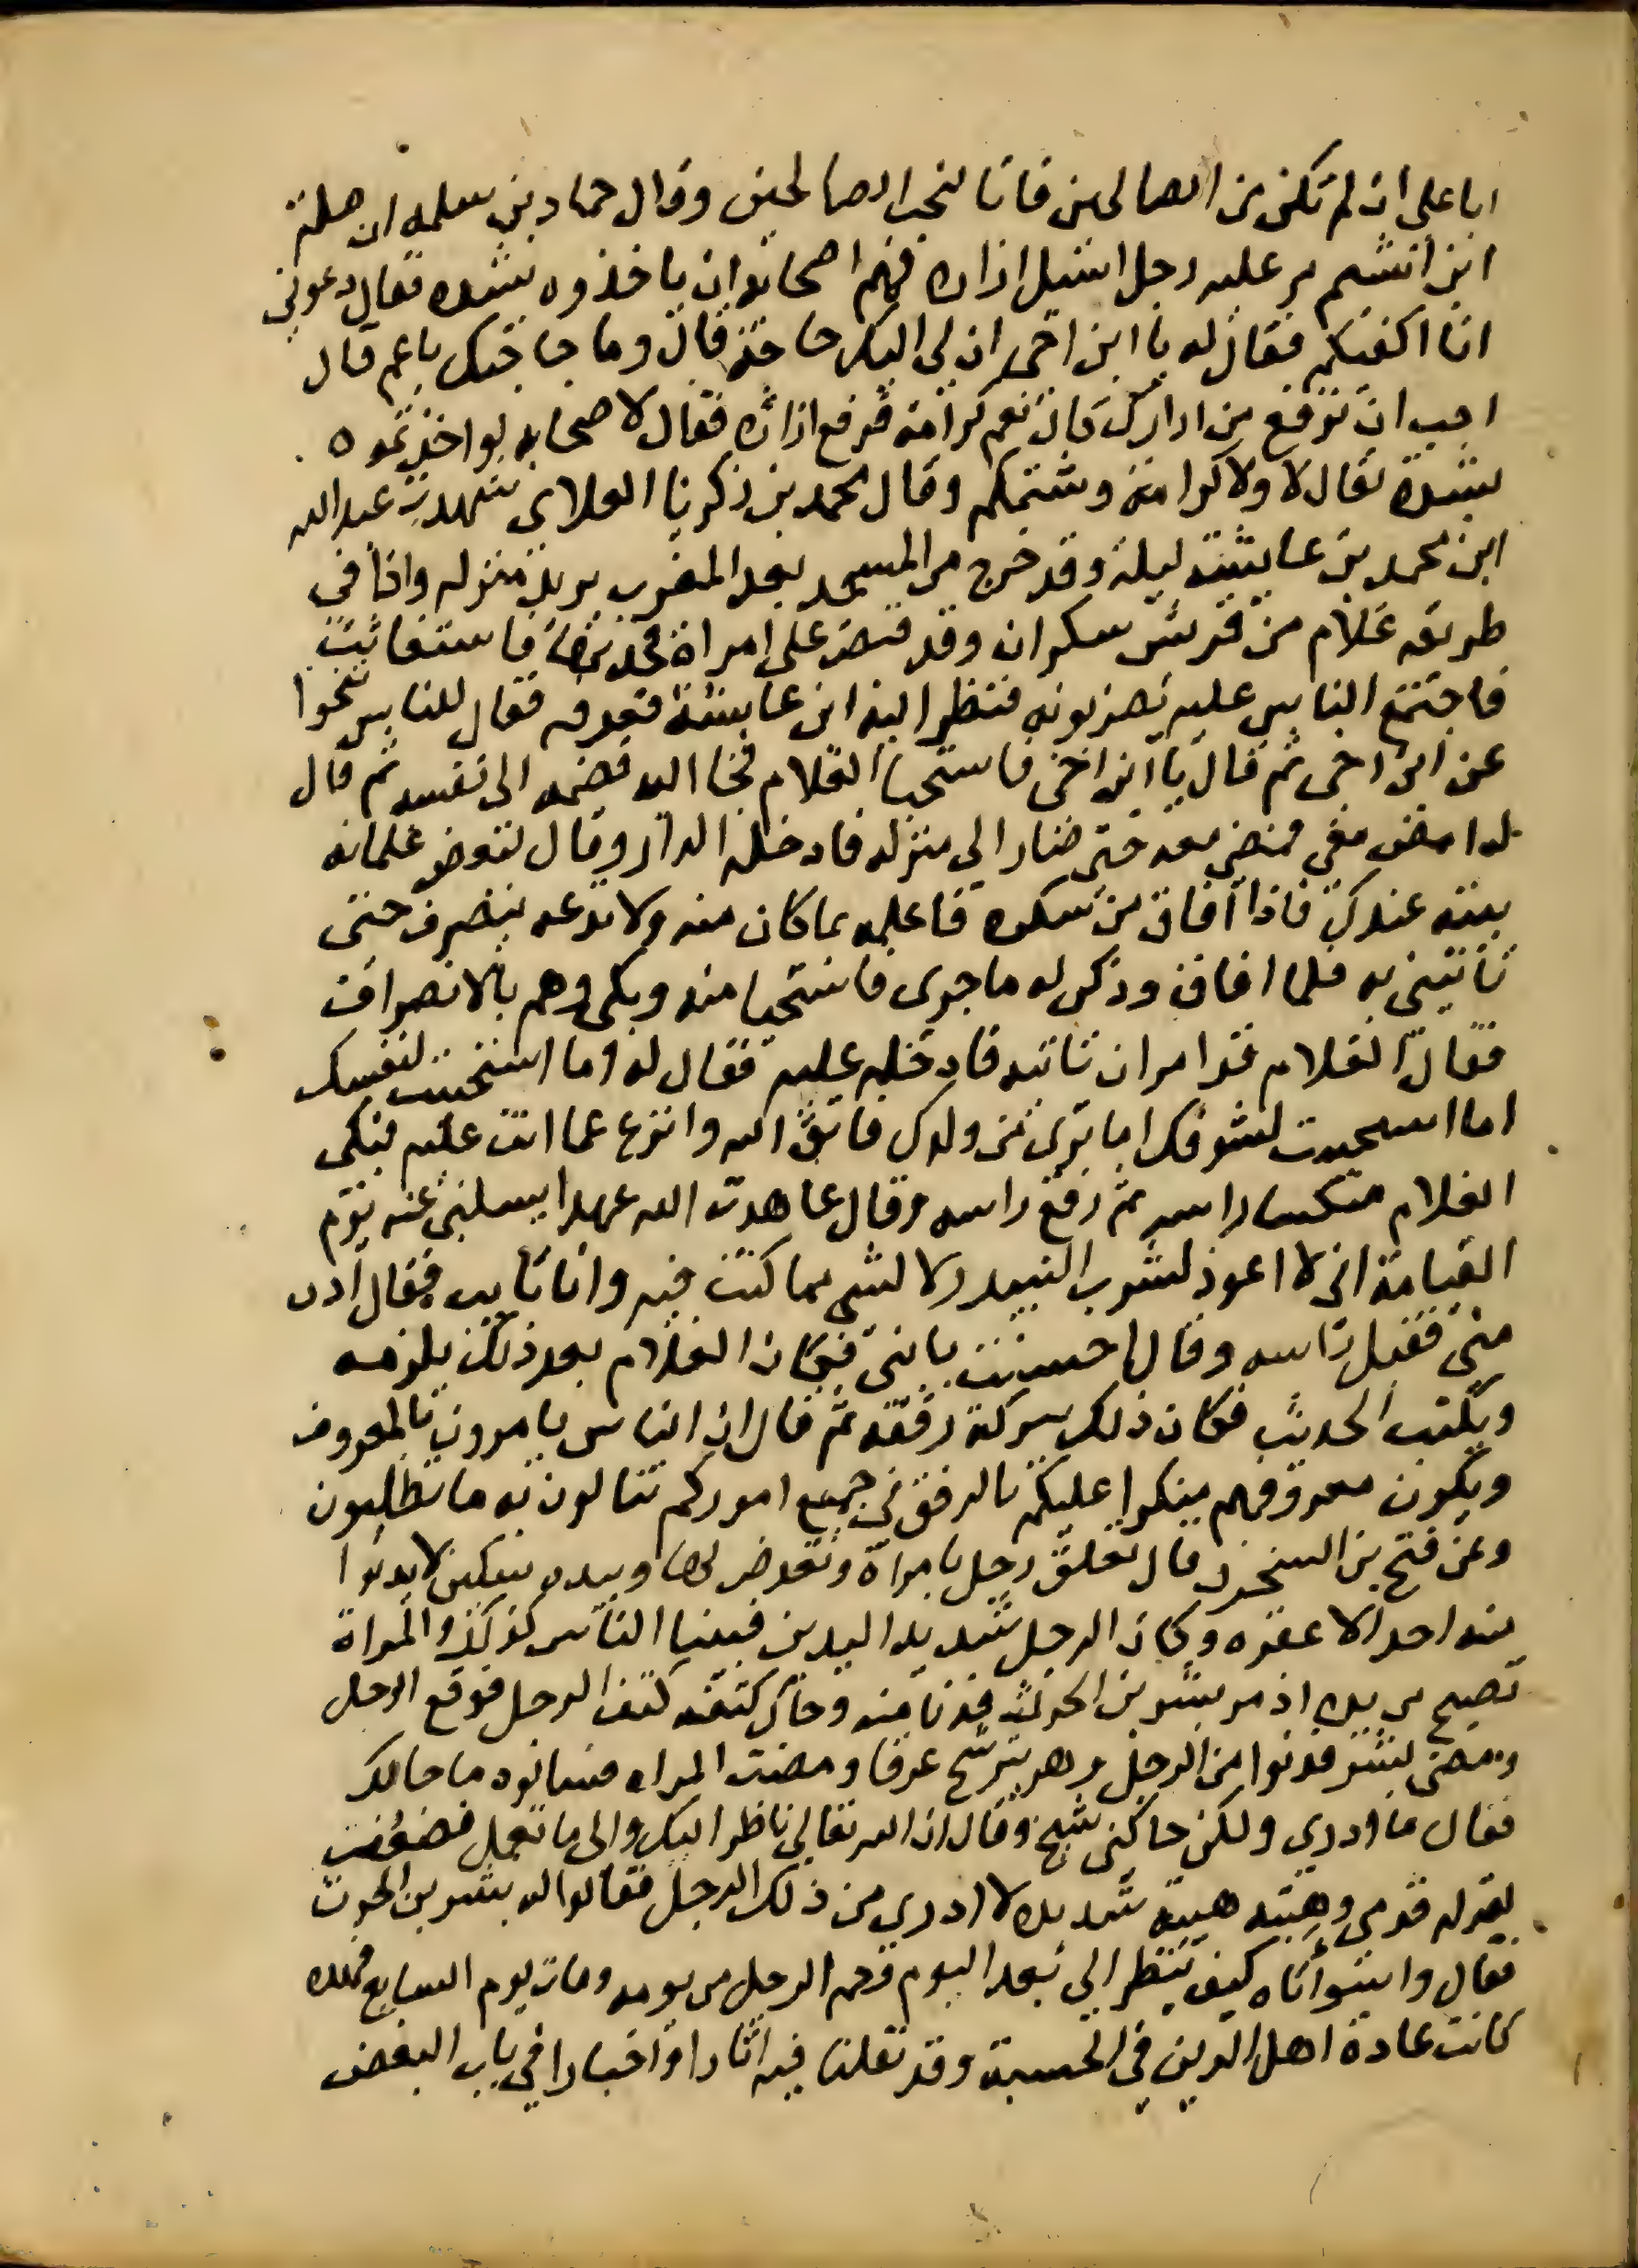 ابا علي ان لم تكن من الصالحين فانا لنحب الصالحين وقال حماد بن سلمه ان صلة
ابن اشيم مر عليه رجل اسبل ازاره فهم اصحابه ان ياخذوه بشده فقال دعوني
انا اكفيكم فقال له يا ابن اخي ان لي اليك حاجة قال وما حاجتك يا عم قال
احب ان ترفع من ازارك قال نعم كرامة فرفع ازاره فقال لاصحابه لو اخذتموه
بشدة لقال لا ولا كرامة وشتمكم وقال محمد بن زكريا الغلابي شهدت عبد الله
ابن محمد بن عايشة ليلة وقد خرج من المسجد بعد المغرب يريد منزله واذا في
طريقه غلام من قريش سكران وقد قبض على امراة فجذبها فاستغاثت
فاجتمع الناس عليه يضربونه فنظر اليه ابن عايشة فعرفه فقال للناس تنحوا
عن ابن اخي ثم قال يا ابن اخي فاستحيا الغلام فجا اليه فضمه الى نفسه ثم قال
له امض معي فمضى معه حتى صار الى منزله فادخله الدار وقال لبعض غلمانه
بيته عندك فاذا افاق من سكره فاعلمه بما كان منه ولا تدعه ينصرف حتى
تاتيني به فلما افاق وذكر له ما جرى فاستحيا منه وبكى وهم بالانصراف
فقال الغلام قد امر ان تاتيه فادخله عليه فقال له اما استحييت لنفسك
اما استحييت لشرفك اما ترى من ولدك فاتق الله وانزع عما انت عليه فبكى
الغلام منكسا راسه ثم رفع راسه وقال عاهدت الله عهدا يسلني عنه يوم
القيامة اني لا اعود لشرب النبيد ولا لشي مما كنت فيه وانا تايب فقال ادن
مني فقبل راسه وقال احسنت يا بني فكان الغلام بعد ذلك يلزمه
ويكتب الحديث فكان ذلك ببركة رفقه ثم قال ان الناس يامرون بالمعروف
ويكون معروفهم منكرا عليكم بالرفق في جميع اموركم تنالون به ما تطلبون
وعن فتح بن الشخرف قال تعلق رجل بامراة وتعرض لها وبيده سكين لا يدنوا
منه احد الا عقره وكان الرجل شديد البدن فبينا الناس كذلك والمراة
تصيح من يده اذ مر بشر بن الحرث فدنا منه وحاك كتفه كتف الرجل فوقع الرجل
ومضى بشر فدنوا من الرجل وهو يترشح عرقا ومضت المراه فسالوه ما حالك
فقال ما ادري ولكن حاكني شيخ وقال ان الله تعالى ناظر اليك والى ما تعمل فضعفت
لقوله قدمي وهبته هيبة شديده لا ادري من ذلك الرجل فقالوا له بشر بن الحرث
فقال واسواتاه كيف ينظر الي بعد اليوم فحم الرجل من يومه ومات يوم السابع فهكذا
كانت عادة اهل الدين في الحسبة وقد نقلنا فيه اثارا واخبارا في باب البغض